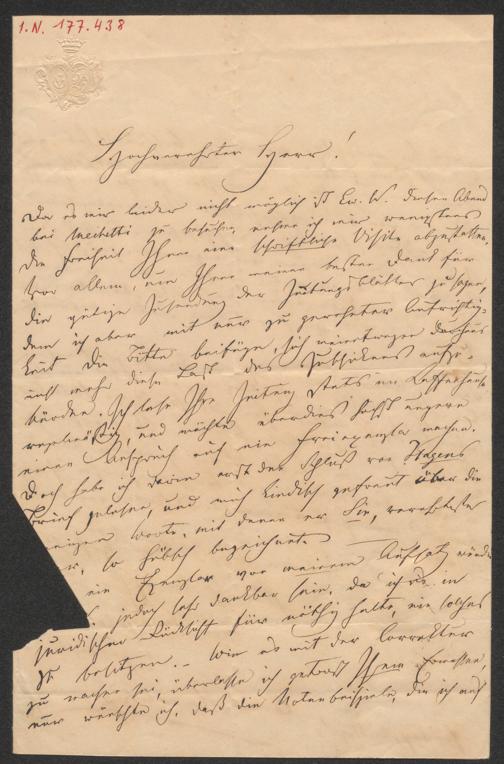 I.N. 177.438
Hochverehrter Herr!
Da es mir leider nicht möglich ist Ew. W. diesen Abend
bei Mechetti zu besuchen, nehme ich mir wenigstens
die Freiheit Ihnen eine schriftliche Visite abzustatten,
vor allem, um Ihnen meinen besten Dank für
die gütige Zusendung der Zeitungsblätter zu sagen,
dem ich aber mit nur zu gerechter Aufrichtig-
keit die Bitte beifüge, sich meinetwegen durchaus
nicht mehr diese Last des Zuschickens aufzu-
bürden. Ich lese Ihre Zeitung stets im Kaffeehause
regelmäßig, und möchte überdies höchst ungern
einen Anspruch auf ein Freiexemplar machen.
Doch habe ich darin erst den Schluß von Hagens
Brief gelesen, und mich kindisch gefreut über die
Worte, mit denen er Sie, verehrtester
so hübsch bezeichnet.
ein Exemplar von meinem Aufsatz würde
jedoch sehr dankbar sein, da ich es in
juridischer Rücksicht für nöthig halte, ein solches
zu besitzen. – Wie es mit der Correktur
zu machen sei, überlasse ich getrost Ihrem Ermessen,
nur wünschte ich, daß die Notenbeispiele, die ich auf